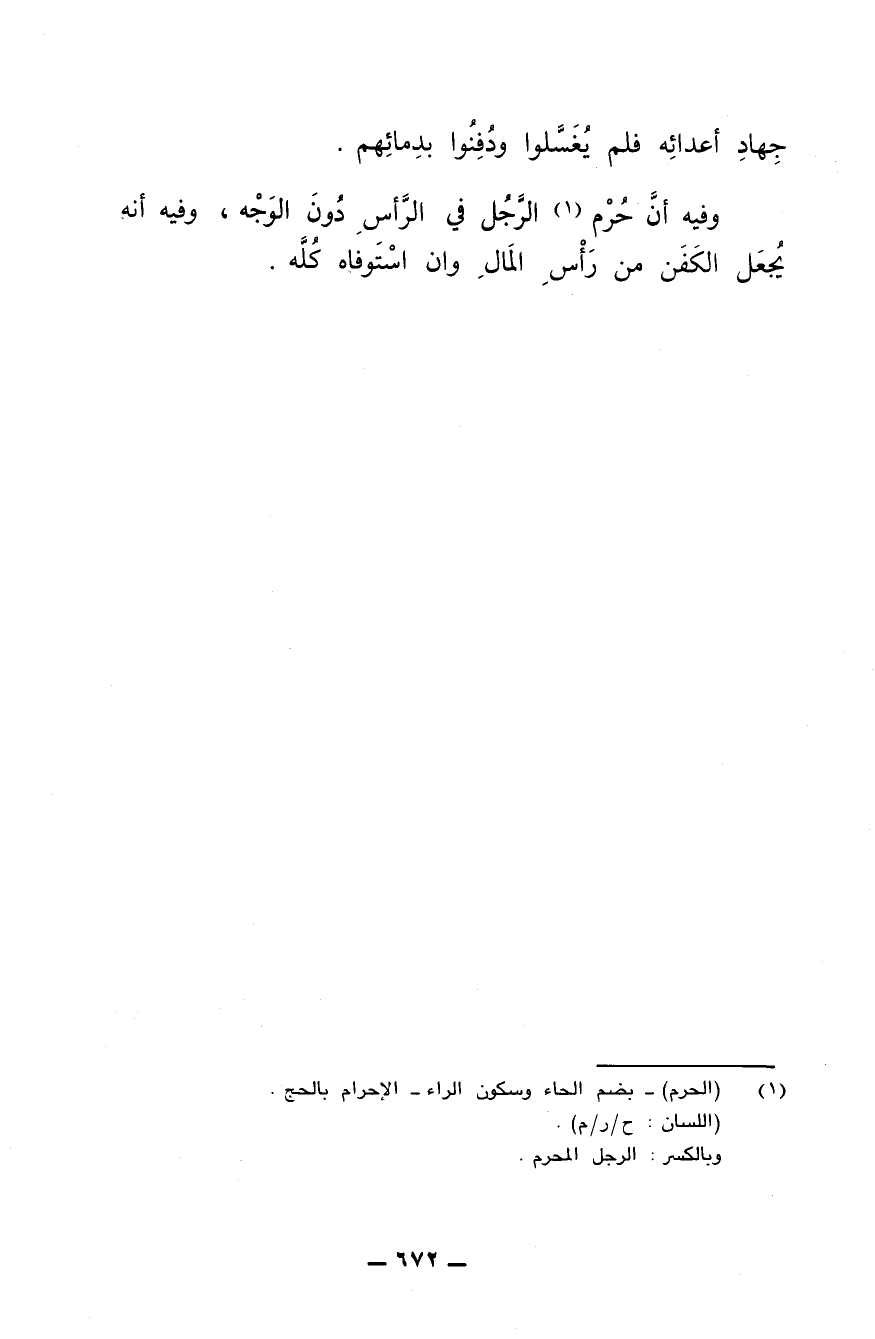 جِهادِ أعدائِه فلم يُغَسَّلوا ودُفِنُوا بدِمائِهم .
وفيه أنَّ حُرْم (١) الرَّجُل في الرَّأسِ دُونَ الوَجْه ، وفيه أنه
يُجعَل الكَفَن من رَأْسِ المَالِ وان اسْتَوفاه كُلَّه .
(١) (الحرم) ـ بضم الحاء وسكون الراء ـ الإحرام بالحج .
(اللسان : ح/ر/م) .
وبالكسر : الرجل المحرم .
ـ ٦٧٢ ـ